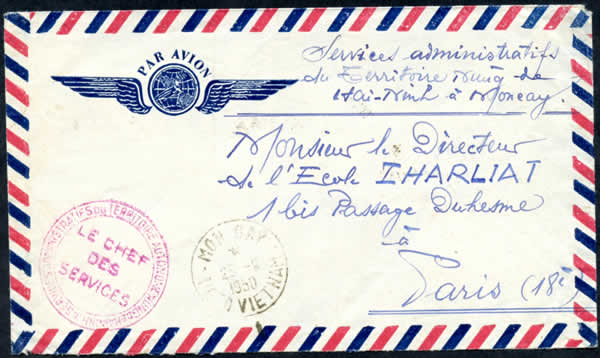 PAR AVION
Services administratifs
du Territoire Nung de
Hai-Ninh à Moncay.
Monsieur le Directeur
de l'Ecole IHARLIAT
1 bis Passage Duhesme
à
Paris (18è)
SERVICES ADMINISTRATIFS DU TERRITOIRE AUTONOME NUNG
LE CHEF
DES
SERVICES
MON CAY
1950
VIET NAM